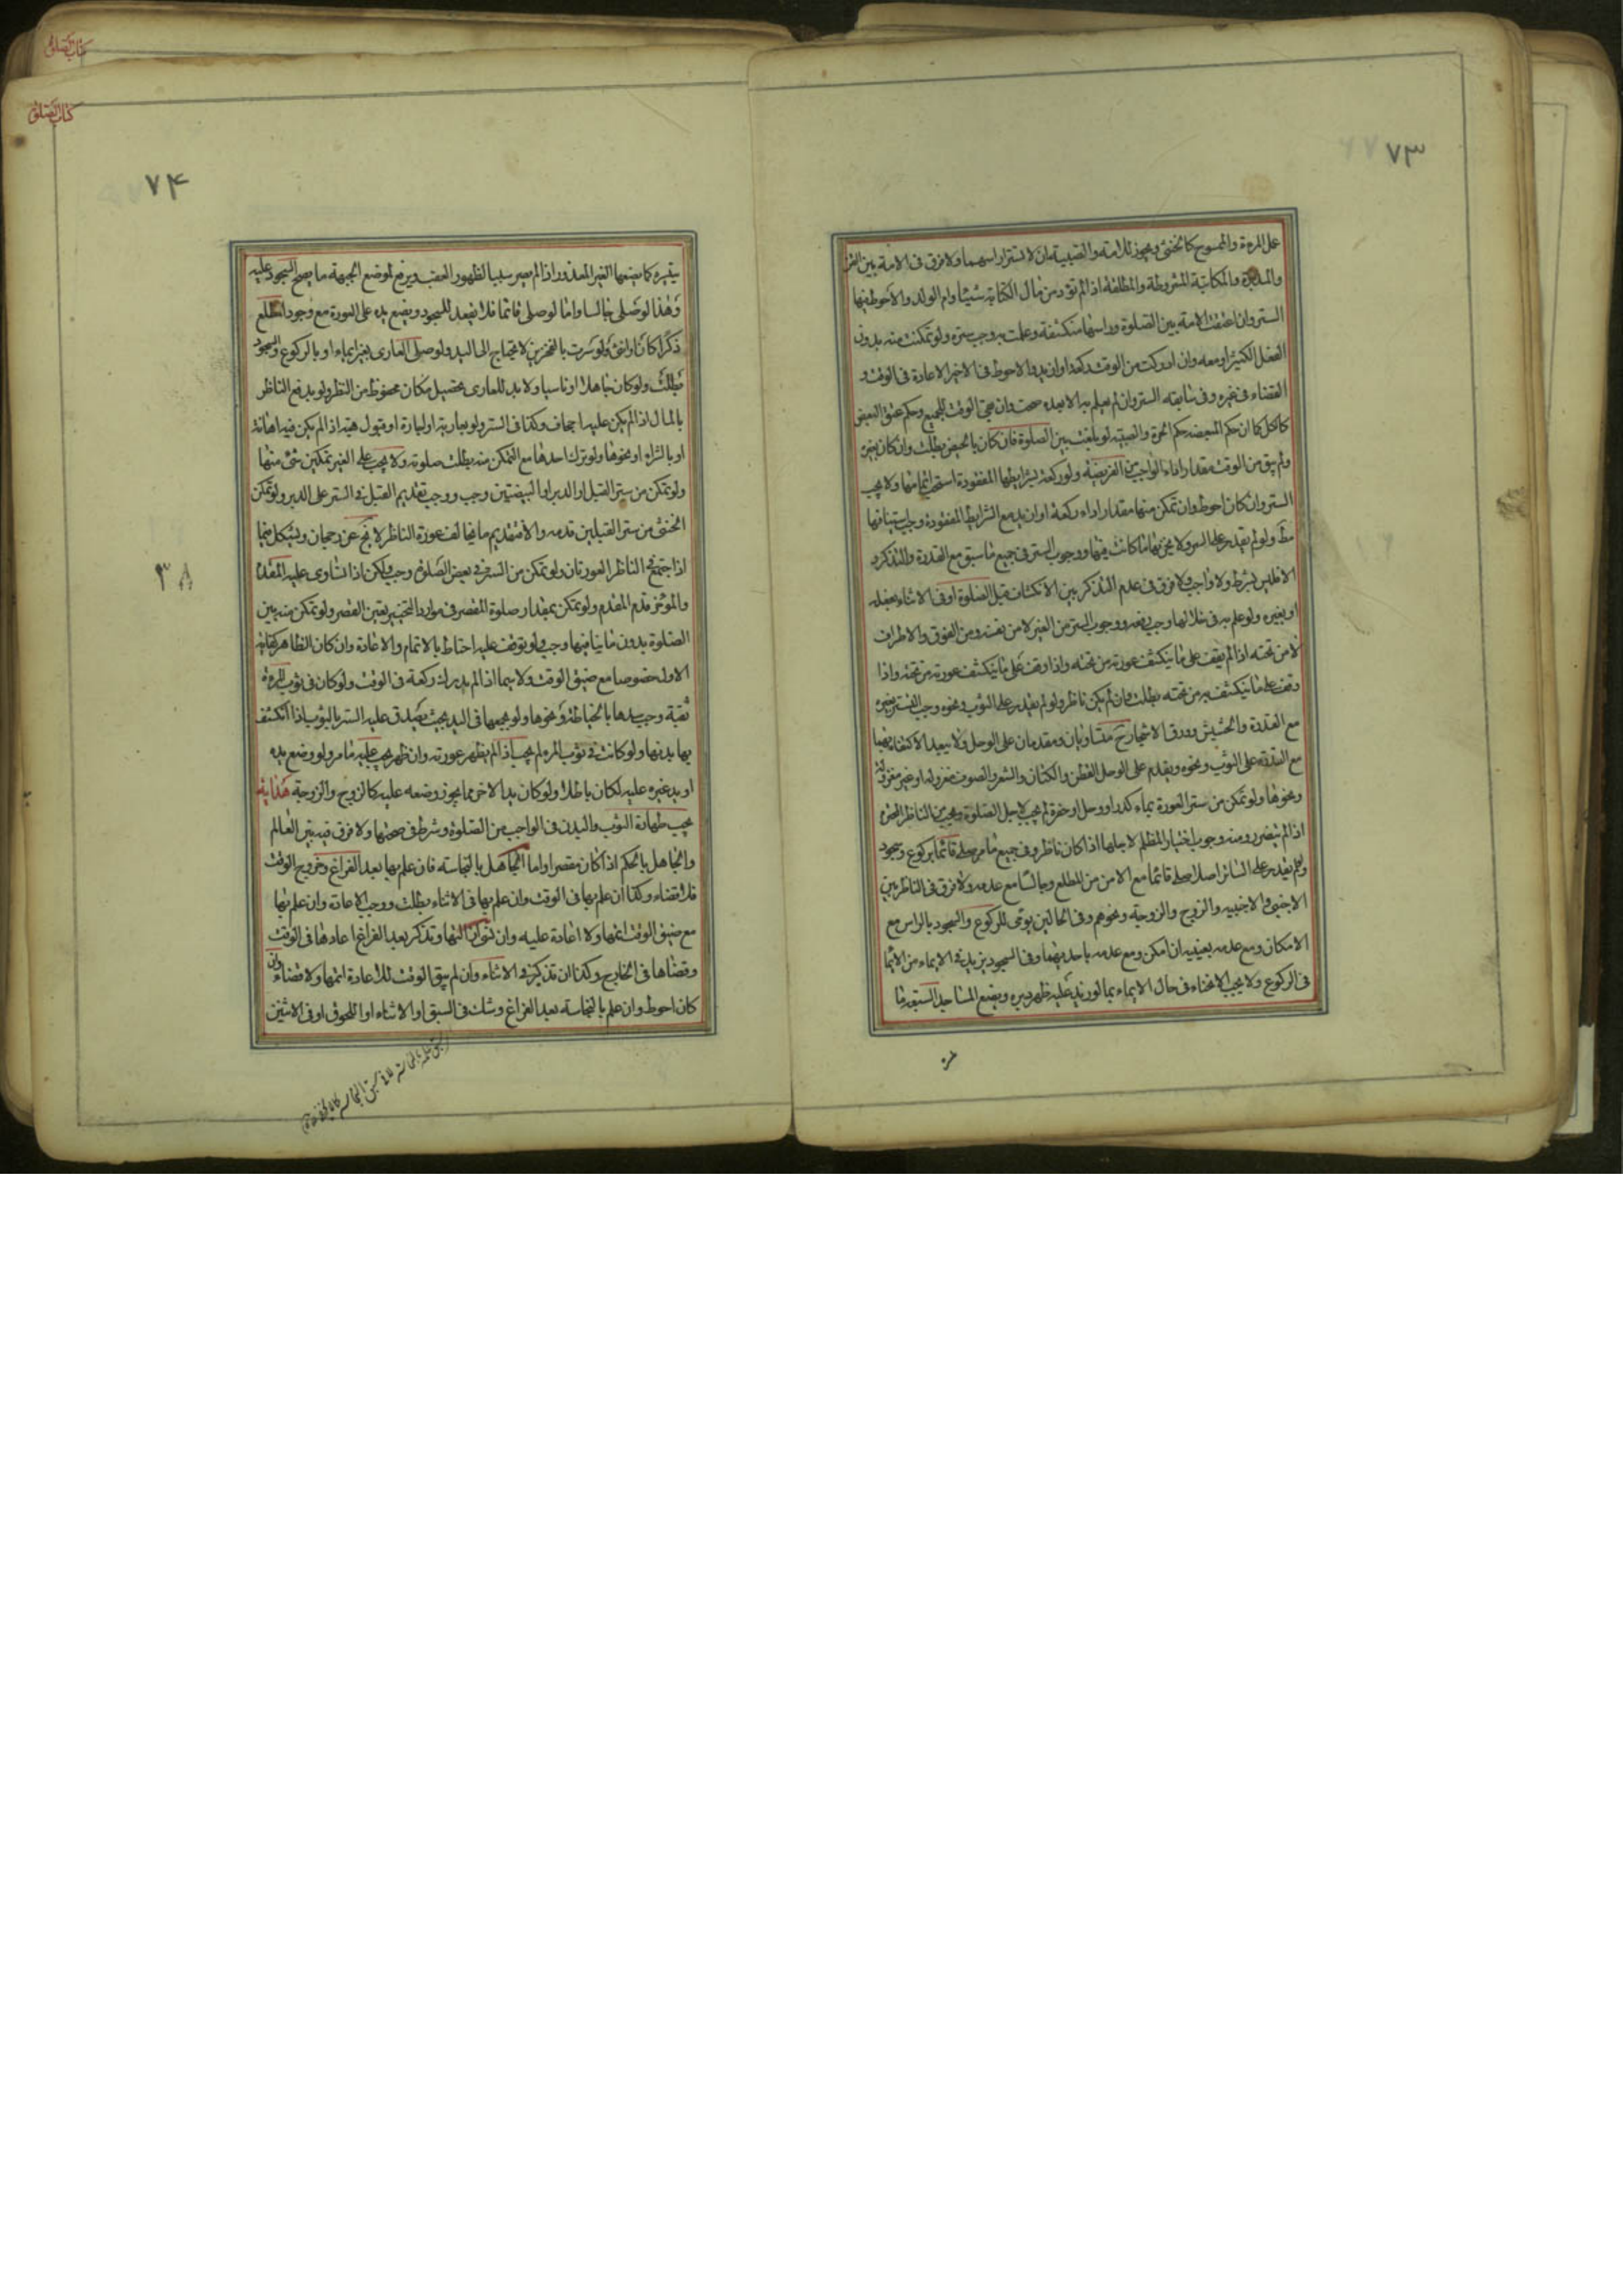 ٧٣
على المرءة والممسوح كالخنثى ويجوز للامة والصبية ان لا تستترا راسهما ولا فرق فى الامة بين القن
والمدبرة والمكاتبة المشروطة والمطلقة اذا لم تؤد من مال الكتابة شيئا وام الولد والاحوط فيها
الستر وان اعتقت الامة بين الصلوة وراسها منكشفة وعلمت به وجب ستره ولو تمكنت منه بدون
الفعل الكثير او معه وان ادركت من الوقت ركعة او ازيد والاحوط فى الاخير الاعادة فى الوقت و
القضاء فى غيره وفى سابقه الستر وان لم يعلم به الا بعده صحت وان بقى الوقت للجميع وحكم عتق البعض
كالكل كما ان حكم المبعضة حكم الحرة والصبية لو بلغت بين الصلوة فان كان بالحيض بطلت وان كان بغيره
ولم يبق من الوقت مقدار اداء الواجب من الفريضة ولو ركعة بشرايطها المفقودة استحب اتمامها ولا يجب
الستر وان كان احوط وان تمكن منها مقدار اداء ركعة او ازيد مع الشرايط المفقودة وجب استينافها
ولو لم يقدر على الستر ولا يخل بها ما كانت فيها ووجوب الستر فى جميع ما سبق مع القدرة والتذكر و
الا فليس بشرط ولا واجب ولا فرق فى عدم التذكر بين الانكشاف قبل الصلوة او فى الاثناء بفعله
او بغيره ولو علم به فى خلالها وجب دفعه ووجوب الستر من الغير لا من نفسه ومن الفوق والاطراف
لا من تحته اذا لم يقف على ما ينكشف عورته من تحته واذا وقف على ما ينكشف عورته من تحته واذا
وقف على ما ينكشف به من تحته بطلت وان لم يكن ناظر ولو لم يقدر على الثوب ونحوه وجب التستر بغيره
مع القدرة والحشيش وورق الاشجار متساويان ومقدمان على الوحل ولا يبعد الاكتفاء بهما
مع القدرة على الثوب ونحوه ويقدم على الوحل القطن والكتان والشعر والصوف مغزولة او غير مغزولة
ونحوها ولو تمكن من ستر العورة بماء كدر او وحل او حفرة لم يجب لاجل الصلوة ويجب من الناظر المحترم
اذا لم يتضرر ومنه وجوب اختيار المظلم لاجلها اذا كان ناظر وفى جميع ما مر صلى قائما بركوع وسجود
ولو لم يقدر على الساتر اصلا صلى قائما مع الامن من المطلع وجالسا مع عدمه ولا فرق فى الناظر بين
الاجنبى والاجنبيه والزوج والزوجة ونحوهم وفى الحالين يومى للركوع والسجود بالراس مع
الامكان ومع عدمه بعينيه ان امكن ومع عدمه باحديهما وفى السجود يزيد فى الايماء من الايماء
فى الركوع ولا يجب الانحناء فى حال الايماء بما لو زيد عليه ظهر دبره ويضع المساجد السبعة ما
كتاب الصلوة
كتاب الصلوة
٧۴
يتقيره كما يضعها الغير المعذور اذا لم يصر سببا لظهور العقب ويرفع لوضع الجبهة ما يصح السجود عليه
وهذا لو صلى جالسا واما لو صلى قائما فلا يقعد للسجود ويضع يده على العورة مع وجود المطلع
ذكرا كان او انثى ولو سترت بالفخذين لا يحتاج الى اليد ولو صلى العارى بغير ايماء او بالركوع والسجود
بطلت ولو كان جاهلا او ناسيا ولا بد للعارى تحصيل مكان محفوظ من النظر ولو بدفع الناظر
بالمال اذا لم يكن عليه اجحاف وكذا فى الستر ولو بعارية او اجارة او قبول هبة اذا لم يكن فيه اهانة
او بالشراء او نحوها ولو ترك احدها مع التمكن منه بطلت صلوته ولا يجب على الغير تمكين شئ منها
ولو تمكن من ستر القبل او الدبر او البيضتين وجب ووجب تقديم القبل فى الستر على الدبر ولو تمكن
الخنثى من ستر القبلين قدمه والا فتقديم ما يخالف عورة الناظر لا يخ عن رجحان ويشكل فيما
اذا اجتمع فى الناظر العورتان ولو تمكن من الستر فى بعض الصلوة وجب ولكن اذا تساوى عليه المقدم
والمؤخر قدم المقدم ولو تمكن بمقدار صلوة القصر فى موارد التخيير يتعين القصر ولو تمكن منه بين
الصلوة بدون ما ينافيها وجب ولو توقف عليه احتاط بالاتمام والاعادة وان كان الظاهر كفاية
الاول خصوصا مع ضيق الوقت ولا سيما اذا لم يدرك ركعة فى الوقت ولو كان فى ثوب المرءة
ثقبة وجب سدها بالخياطة ونحوها ولو بجمعها فى اليد بحيث يصدق عليه الستر بالثوب اذا انكشف
بها بدنها ولو كانت فى ثوب المرء لم يجب اذا لم يظهر عورته وان ظهر يجب عليه ما مر ولو وضع يده
او يد غيره عليه لكان باطلا ولو كان يد الاخر مما يجوز وضعه عليه كالزوج والزوجة هداية
يجب طهارة الثوب والبدن فى الواجب من الصلوة وشرط فى صحتها ولا فرق فيه بين العالم
والجاهل بالحكم اذا كان مقصرا واما الجاهل بالنجاسة فان علم بها بعد الفراغ وخروج الوقت
فلا قضاء وكذا ان علم بها فى الوقت وان علم بها فى الاثناء بطلت ووجب الاعادة وان علم بها
مع ضيق الوقت اتمها ولا اعادة عليه وان تذكر بعد الفراغ اعادها فى الوقت
وقضاها فى الخارج وكذا ان تذكر فى الاثناء وان لم يبق الوقت للاعادة اتمها ولا قضاء وان
كان احوط وان علم بالنجاسة بعد الفراغ وشك فى السبق او الاثناء او اللحوق او فى الاثنين
٣٨